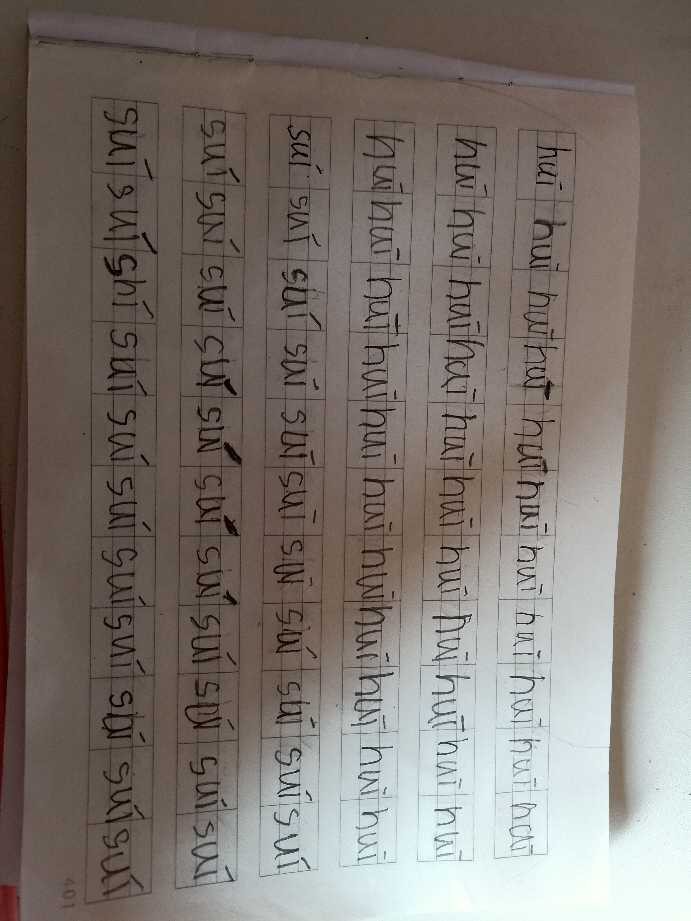 huī huī huī huī huī huī huī huī huī huī huī
huī huī huī huī huī huī huī huī huī huī huī
huī huī huī huī huī huī huī huī huī huī huī
suí suí suí suí suí suí suí suí suí suí suí
suí suí suí suí suí suí suí suí suí suí suí
suí suí suí suí suí suí suí suí suí suí suí
401